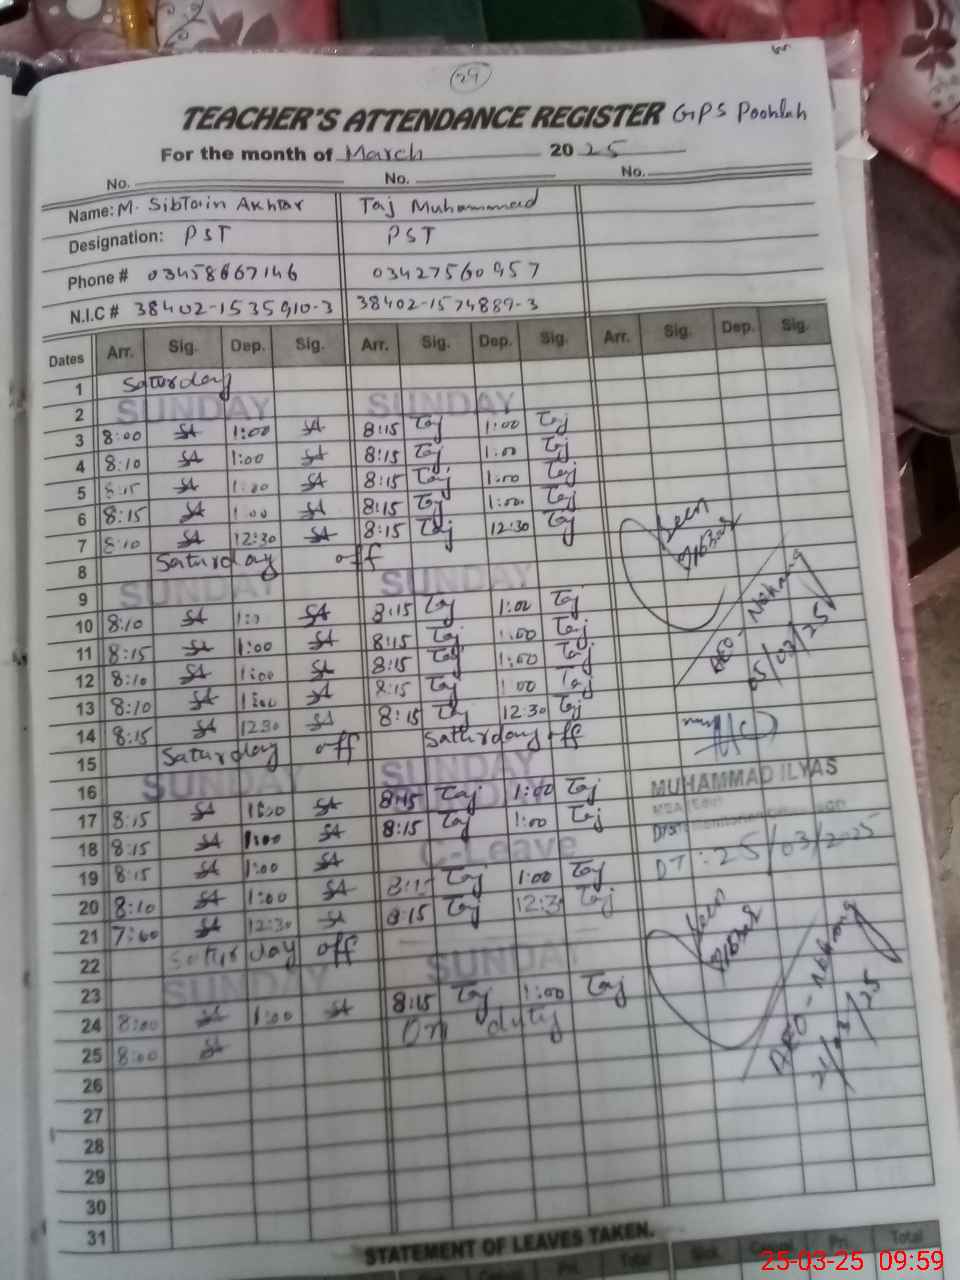 29
TEACHER'S ATTENDANCE REGISTER GPS Poohlah
For the month of March 2025
No. No. No.
Name: M. Sibtain Akhtar Taj Muhammad
Designation: PST PST
Phone # 03458667146 03427560957
N.I.C # 38402-1535910-3 38402-1574889-3
Dates Arr. Sig. Dep. Sig. Arr. Sig. Dep. Sig. Arr. Sig. Dep. Sig.
1 Saturday
2 SUNDAY SUNDAY
3 8:00 SA 1:00 SA 8:15 Taj 1:00 Taj
4 8:10 SA 1:00 SA 8:15 Taj 1:00 Taj
5 8:15 SA 1:00 SA 8:15 Taj 1:00 Taj
6 8:15 SA 1:00 SA 8:15 Taj 1:00 Taj
7 8:10 SA 12:30 SA 8:15 Taj 12:30 Taj
8 Saturday off
9 SUNDAY SUNDAY
10 8:10 SA SA 8:15 Taj 1:00 Taj
11 8:15 SA 1:00 SA 8:15 Taj 1:00 Taj
12 8:10 SA 1:00 SA 8:15 Taj 1:00 Taj
13 8:10 SA 1:00 SA 8:15 Taj 1:00 Taj
14 8:15 SA 12:30 SA 8:15 Taj 12:30 Taj
15 Saturday off Saturday off
16 SUNDAY SUNDAY
17 8:15 SA 1:00 SA 8:15 Taj 1:00 Taj
18 8:15 SA 1:00 SA 8:15 Taj 1:00 Taj
19 8:15 SA 1:00 SA C-Leave
20 8:10 SA 1:00 SA 8:15 Taj 1:00 Taj
21 SA 12:30 SA 8:15 Taj 12:30 Taj
22 Saturday off
23 SUNDAY SUNDAY
24 8:00 SA 1:00 SA 8:15 Taj 1:00 Taj
25 8:00 SA On duty
26
27
28
29
30
31
Seen
AEO - Nehang
05/03/25
MUHAMMAD ILYAS
DT: 25/03/2025
Seen
AEO - Nehang
STATEMENT OF LEAVES TAKEN.
Total Sick Casual Total
25-03-25 09:59